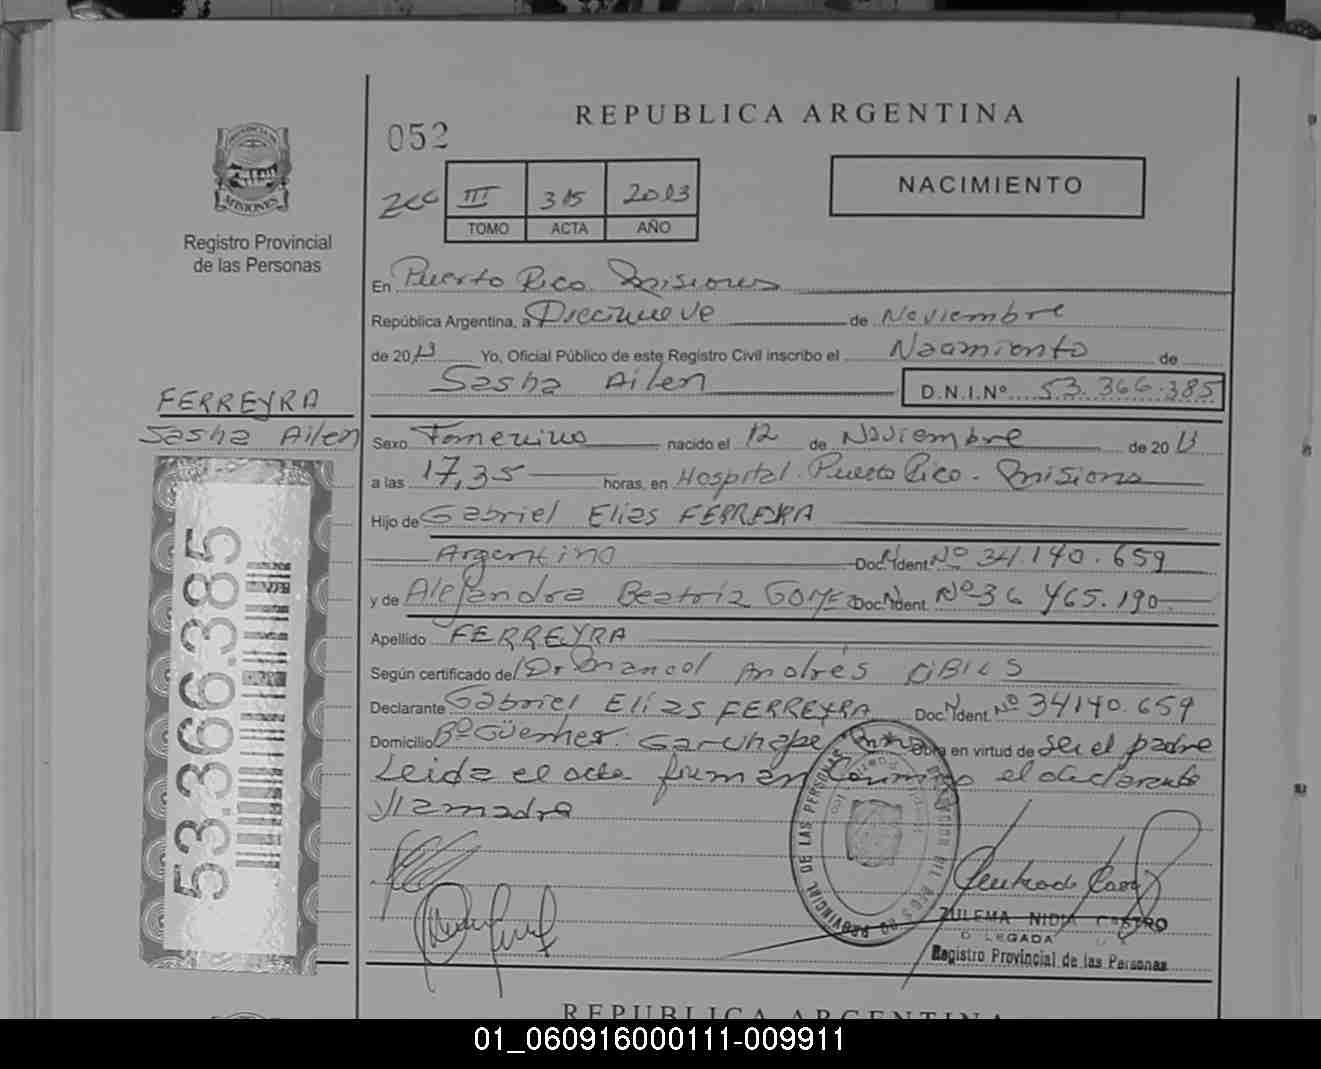 REPUBLICA ARGENTINA
052
NACIMIENTO
III 315 2013
TOMO ACTA AÑO
PROVINCIA DE
MISIONES
Registro Provincial
de las Personas
En Puerto Rico. Misiones
República Argentina, a Diecinueve de Noviembre
de 2013 Yo, Oficial Público de este Registro Civil inscribo el Nacimiento de
Sasha Ailen D.N.I.Nº 53.366.385
FERREYRA
Sasha Ailen
Sexo Femenino nacido el 12 de Noviembre de 2013
a las 17,35 horas, en Hospital. Puerto Rico - Misiones
Hijo de Gabriel Elias FERREYRA
Argentino Doc. Ident. Nº 34.140.659
y de Alejandra Beatriz GOMEZ Doc. Ident. Nº 36.465.190
Apellido FERREYRA
Según certificado del Dr Manuel Andrés CIBILS
Declarante Gabriel Elías FERREYRA Doc. Ident. Nº 34140.659
Domicilio Bº Güemes. Garuhape Mnes Obra en virtud de ser el padre
Leida el acta firman conmigo el declarante
y la madre
53.366.385
PROVINCIAL DE LAS PERSONAS
ZULEMA NIDIA CASTRO
DELEGADA
Registro Provincial de las Personas
REPUBLICA ARGENTINA
01_060916000111-009911